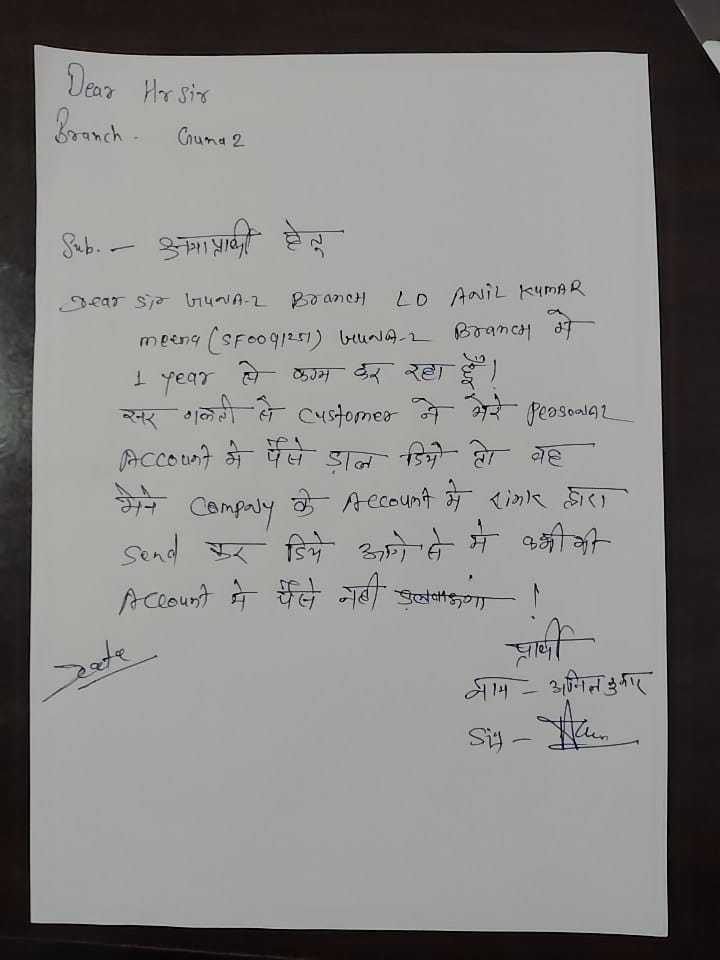 Dear Hr Sir
Branch - Guna 2
Sub. - क्षमाप्रार्थी हेतू
Dear Sir GUNA-2 Branch LO ANIL KUMAR
meena (SF009125) GUNA-2 Branch मे
1 year से काम कर रहा हूँ!
सर गलती से Customer ने मेरे Personal
Account मे पैसे ड़ाल डिये तो वह
मैने Company के Account मे लिंक द्वारा
Send कर डिये आगे से मे कभी भी
Account मे पैसे नही ड़लवाऊंगा !
प्रार्थी
Date
नाम - अनिल कुमार
Sig -